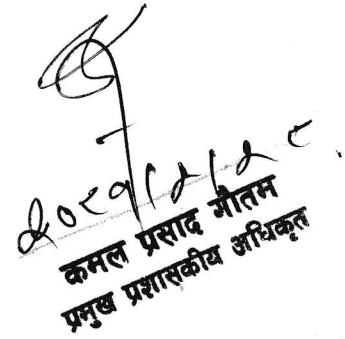 २०८१/२/२८
कमल प्रसाद गौतम
प्रमुख प्रशासकीय अधिकृत